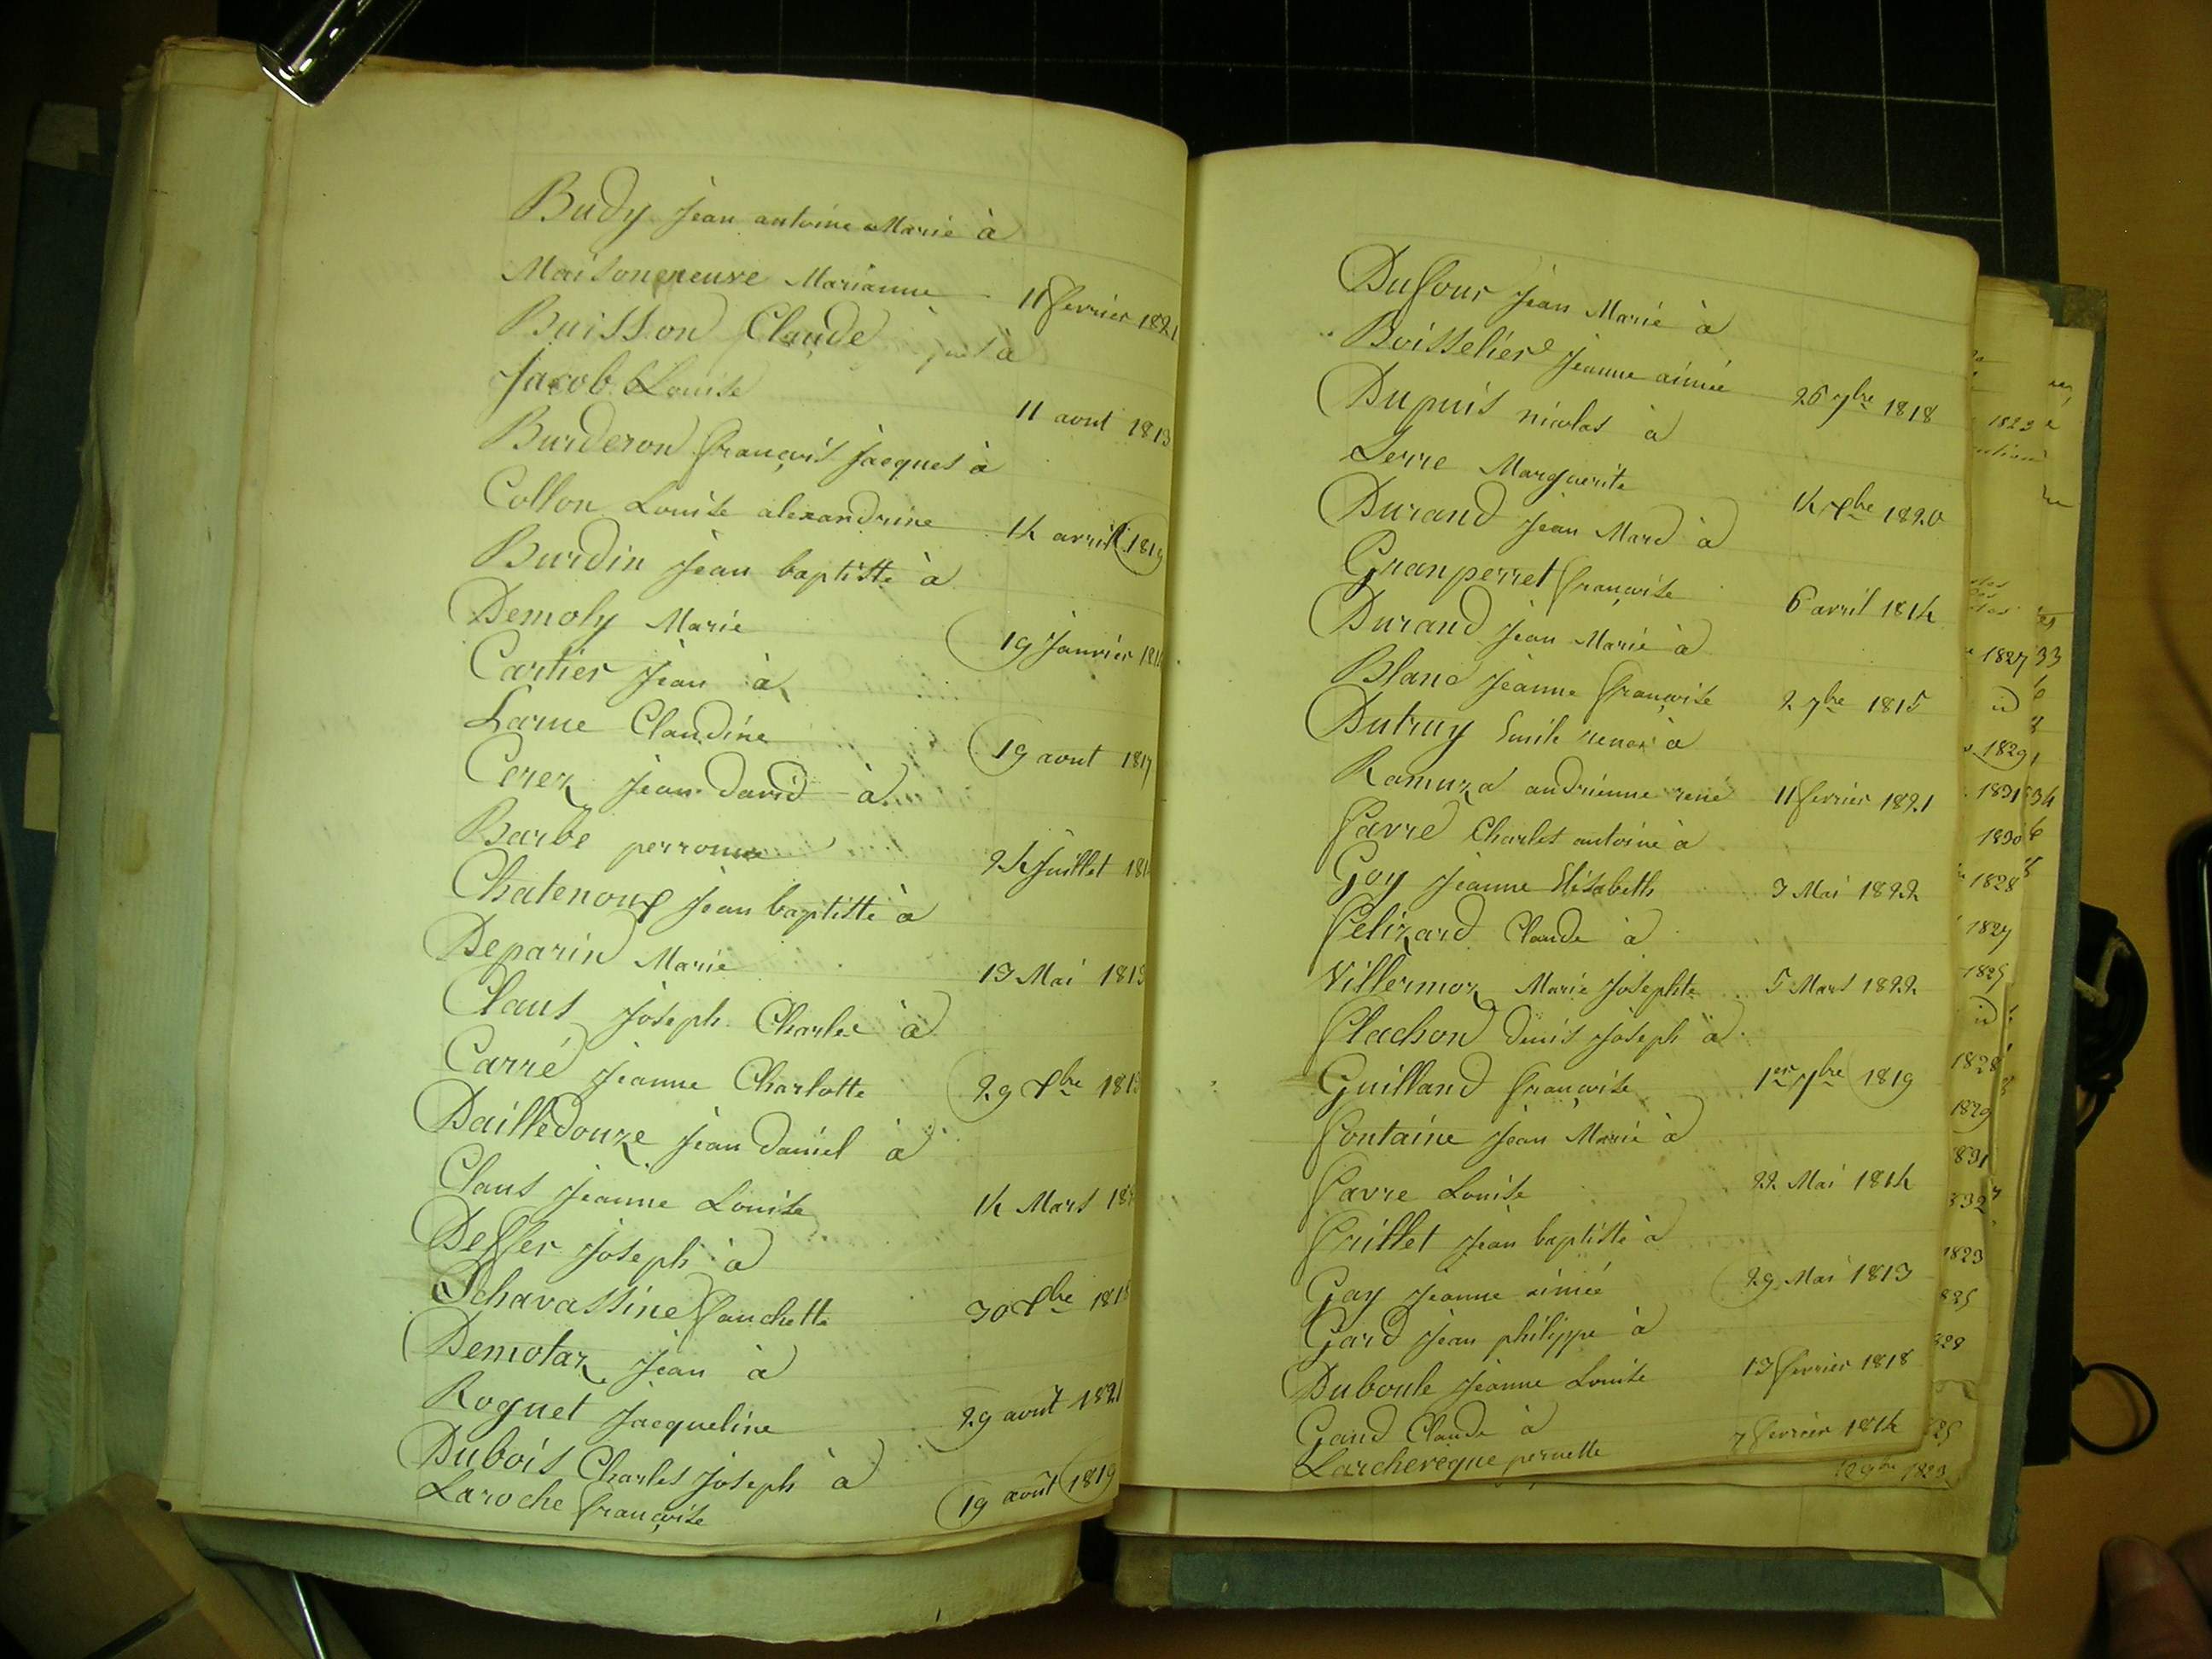 Budy Jean antoine Marie à
Maisonneuve Marianne 11 fevrier 1821
Buisson Claude à
Jacob Louise 11 aout 1813
Burderon françois Jacques à
Collon Louise alexandrine 14 avril 1819
Burdin Jean baptiste à
Demoly Marie 19 Janvier
Cartier Jean à
Larue Claudine 19 aout 1817
Cerez Jean david à
Barbe perronne 24 Juillet
Chatenoux Jean baptiste à
Deparis Marie 13 Mai 1813
Claus Joseph Charles à
Carré Jeanne Charlotte 29 Xbre
Dailledouze Jean daniel à
Claus Jeanne Louise 14 Mars
Deffer Joseph à
Schavassine fanchette 30 Xbre
Demotaz Jean à
Roguet Jacqueline 29 aout 1821
Dubois Charles Joseph à
Laroche françoise 19 août 1819
Duffour Jean Marie à
Boisselier Jeanne aimée 26 7bre 1818
Dupuis nicolas à
Serre Marguerite 14 Xbre 1820
Durand Jean Marc à
Granperret françoise 6 avril 1814
Durand Jean Marie à
Blanc Jeanne françoise 2 7bre 1815
Dutruy Emile à
Ramuza andrienne rené 11 fevrier 1821
favre Charles antoine à
Goy Jeanne Elisabeth 3 Mai 1822
felizard Claude à
Villermoz Marie Josephte 5 Mars 1822
flachon denis Joseph à
Guilland françoise 1er 7bre 1819
fontaine Jean Marie à
favre Louise 22 Mai 1814
frillet Jean baptiste à
Gay Jeanne aimée 29 Mai 1813
Gard Jean philippe à
Duboule Jeanne Louise 13 fevrier 1818
Gand Claude à
Larcheveque pernette 7 fevrier 1814
1823
1827
33
id
1829
1831
34
1830
1828
1827
1825
id
1828
1829
1823